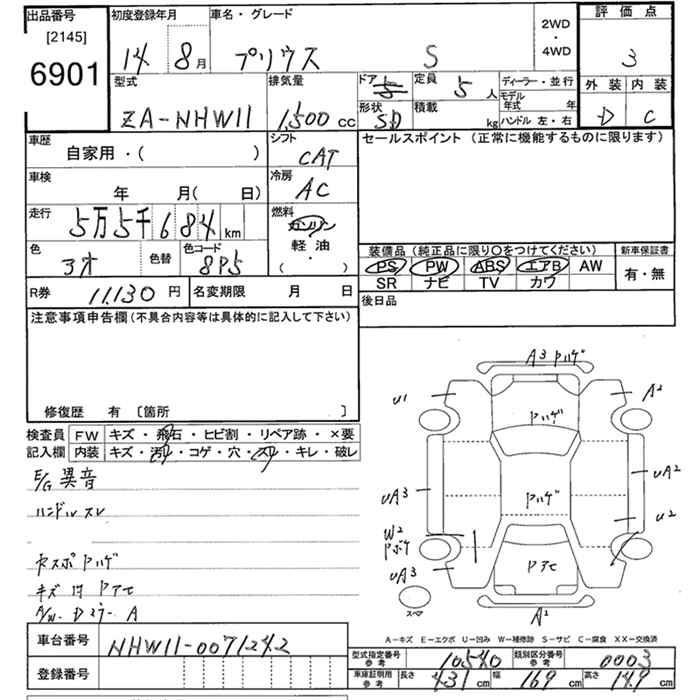 出品番号
[2145]
6901
初度登録年月
14 8月
車名・グレード
プリウス S
2WD
・
4WD
評価点
3
外装 内装
D C
型式
ZA-NHW11
排気量
1,500 cc
ドア
5
形状
SD
定員 5 人
積載 kg
ディーラー・並行
モデル
年式 年
ハンドル 左・右
車歴
自家用・( )
シフト
CAT
車検
年 月( 日)
冷房
AC
走行
5万5千684km
燃料
ガソリン
軽油
・
( )
色
3オ
色替
色コード
8P5
R券 11,130 円
名変期限 月 日
セールスポイント (正常に機能するものに限ります)
装備品(純正品に限り○をつけてください)
PS PW ABS エアB AW
SR ナビ TV カワ
新車保証書
有・無
後日品
注意事項申告欄(不具合内容等は具体的に記入して下さい)
修復歴 有 〔箇所 〕
検査員
記入欄
FW キズ・飛石・ヒビ割・リペア跡・×要
内装 キズ・汚レ・コゲ・穴・スレ・キレ・破レ
E/G 異音
ハンドルスレ
キズ
A
A3 Pハゲ
U1
A2
Pハゲ
UA3
UA2
Pハゲ
U2
W2
Pボケ
UA3
スペア
A2
A-キズ E-エクボ U-凹み W-補修跡 S-サビ C-腐食 XX-交換済
車台番号 NHW11-0071242
登録番号
型式指定番号
参考
10540
類別区分番号
参考
0003
車庫証明用
参考
長さ 431 cm 幅 169 cm 高さ 149 cm